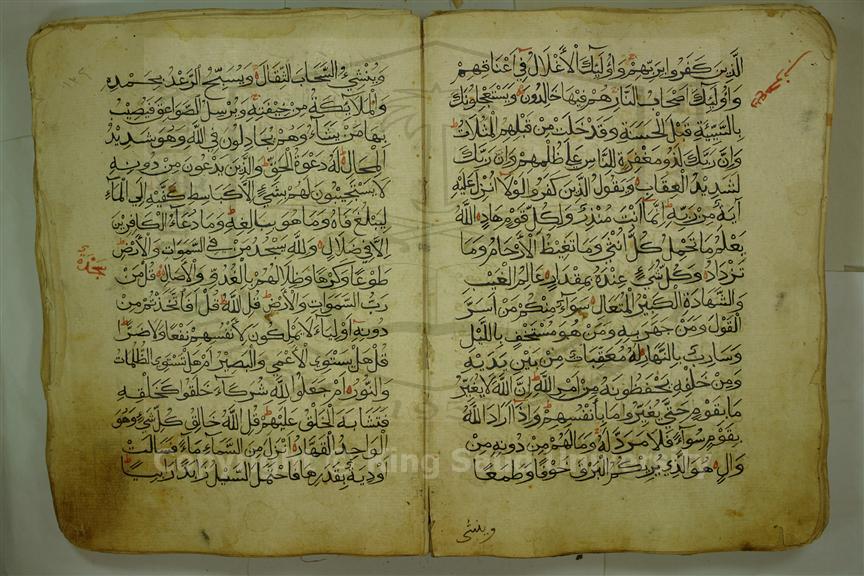 الذين كفروا بربهم واوليك الاغلال في اعناقهم
واوليك اصحاب النار هم فيها خالدون ويستعجلونك
بالسيية قبل الحسنة وقد خلت من قبلهم المثلات
وان ربك لذو مغفرة للناس على ظلمهم وان ربك
لشديد العقاب ويقول الذين كفروا لولا انزل عليه
آية من ربه انما انت منذر ولكل قوم هاد الله
يعلم ما تحمل كل انثى وما تغيظ الارحام وما
تزداد وكل شيء عنده بمقدار عالم الغيب
والشهادة الكبير المتعال سواء منكم من اسر
القول ومن جهر به ومن هو مستخف بالليل
وسارب بالنهار له معقبات من بين يديه
ومن خلفه يحفظونه من امر الله ان الله لا يغير
ما بقوم حتى يغيروا ما بانفسهم واذا اراد الله
بقوم سوءا فلا مرد له وما لهم من دونه من
وال هو الذي يريكم البرق خوفا وطمعا
وينشئ
وينشئ السحاب الثقال ويسبح الرعد بحمده
والملايكة من خيفته ويرسل الصواعق فيصيب
بها من يشاء وهم يجادلون في الله وهو شديد
المحال له دعوة الحق والذين يدعون من دونه
لا يستجيبون لهم بشيء الا كباسط كفيه الى الماء
ليبلغ فاه وما هو ببالغه وما دعاء الكافرين
الا في ضلال ولله يسجد من في السموات والارض
طوعا وكرها وظلالهم بالغدو والاصال قل من
رب السموات والارض قل الله قل افاتخذتم من
دونه اولياء لا يملكون لانفسهم نفعا ولا ضرا
قل هل يستوي الاعمى والبصير ام هل تستوي الظلمات
والنور ام جعلوا لله شركاء خلقوا كخلقه
فتشابه الخلق عليهم قل الله خالق كل شيء وهو
الواحد القهار انزل من السماء ماء فسالت
اودية بقدرها فاحتمل السيل زبدا رابيا
سجدة